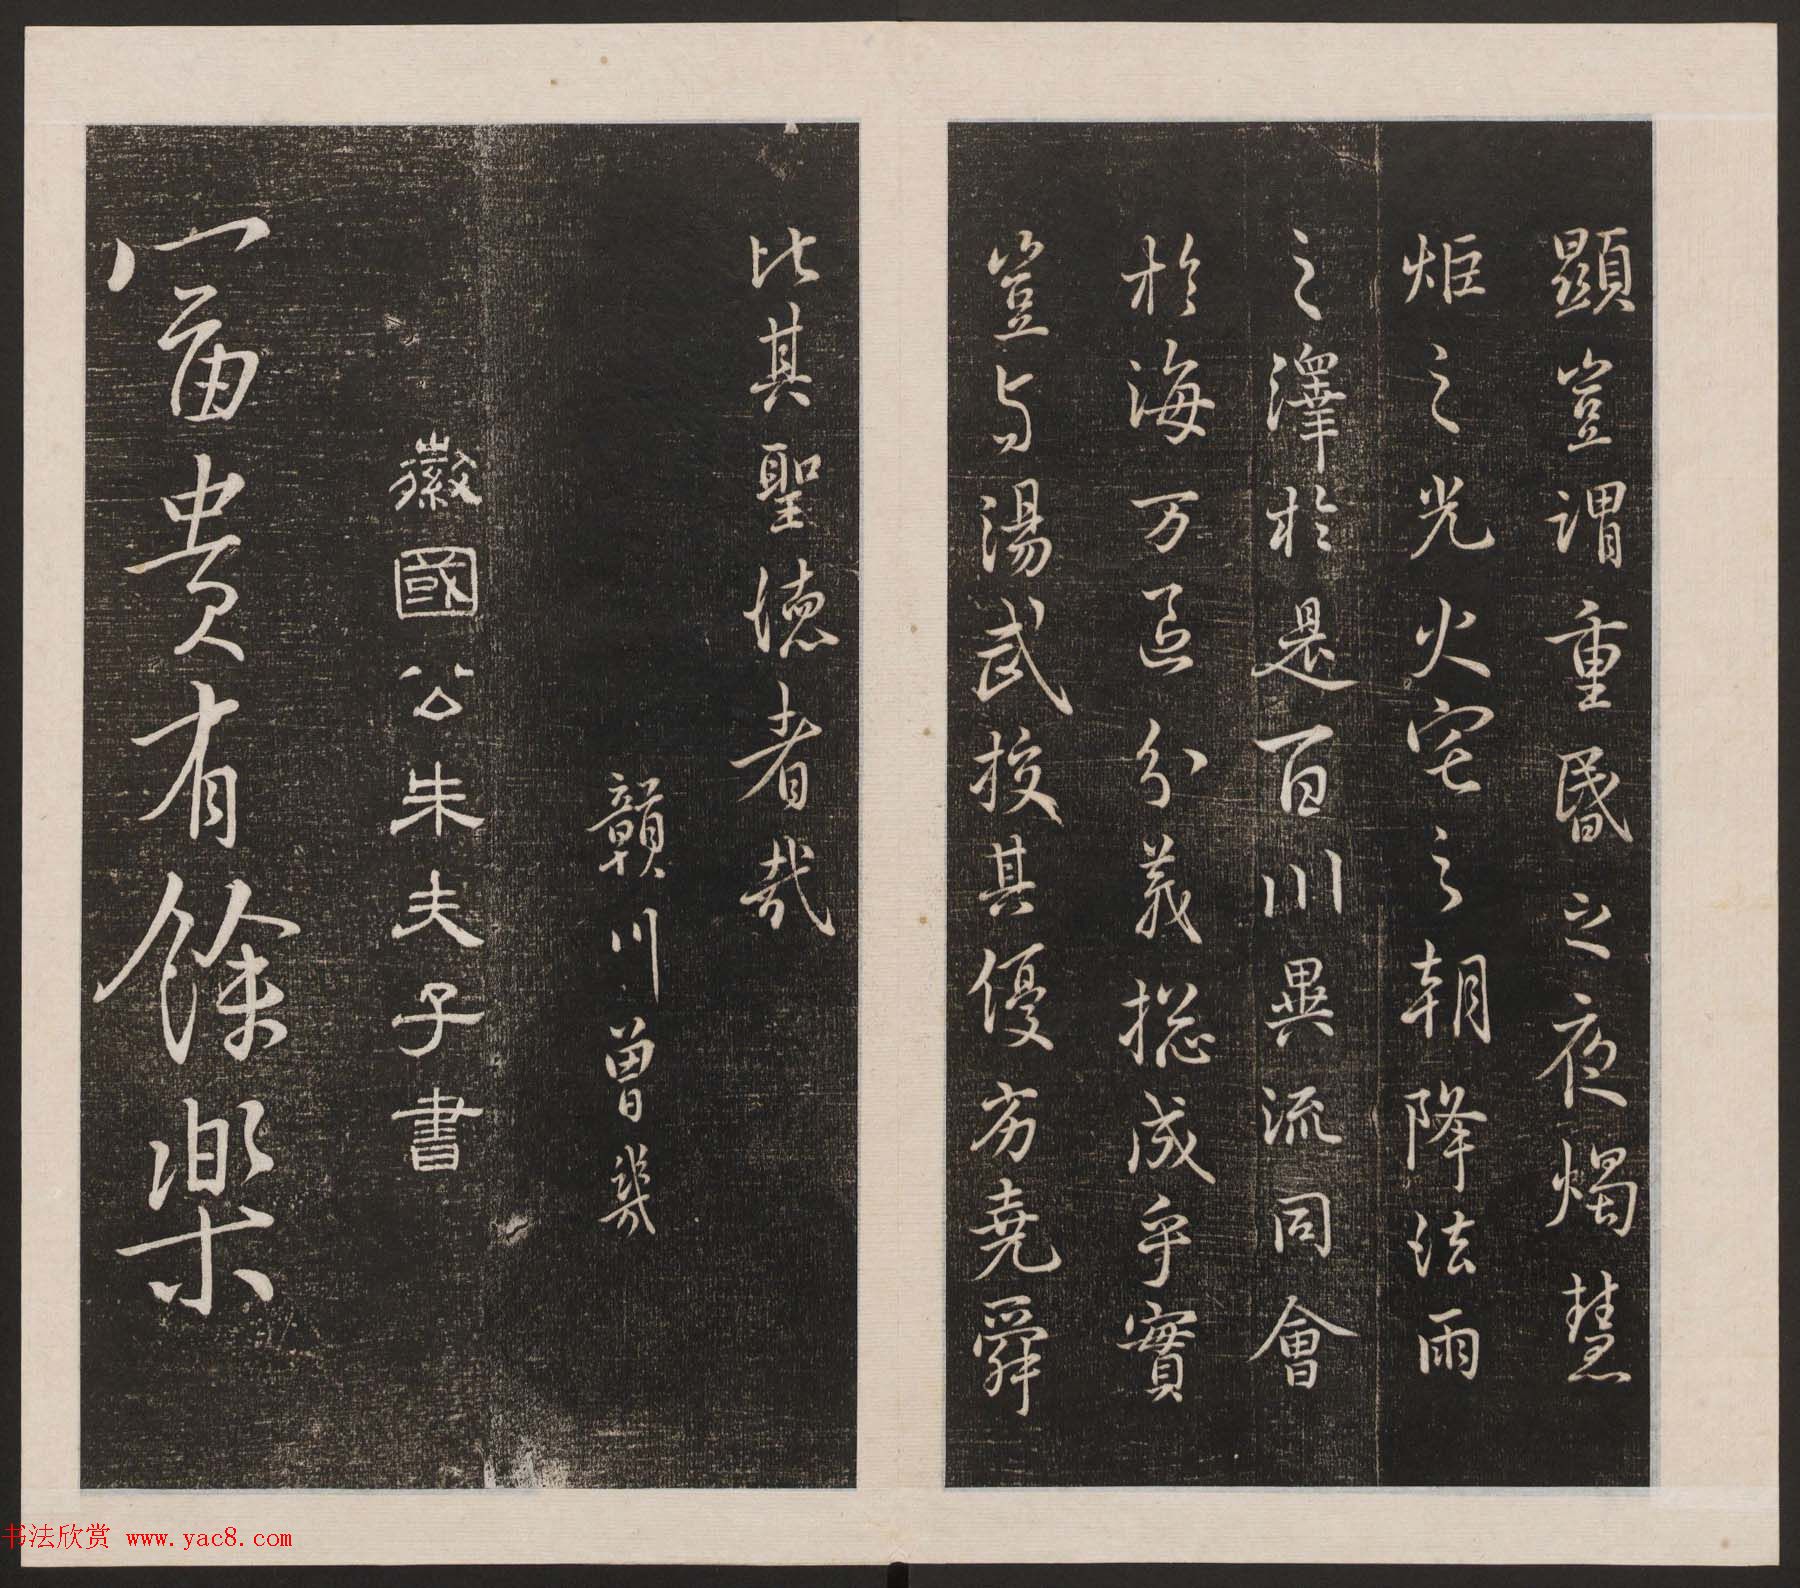 顯豈謂重昏之夜燭慧
炬之光火宅之朝降法雨
之澤於是百川異流同會
於海万區分義捴成乎實
豈与湯武挍其優劣堯舜
比其聖德者哉
贛川曾幾
徽國公朱夫子書
富貴有餘樂
书法欣赏 www.yac8.com